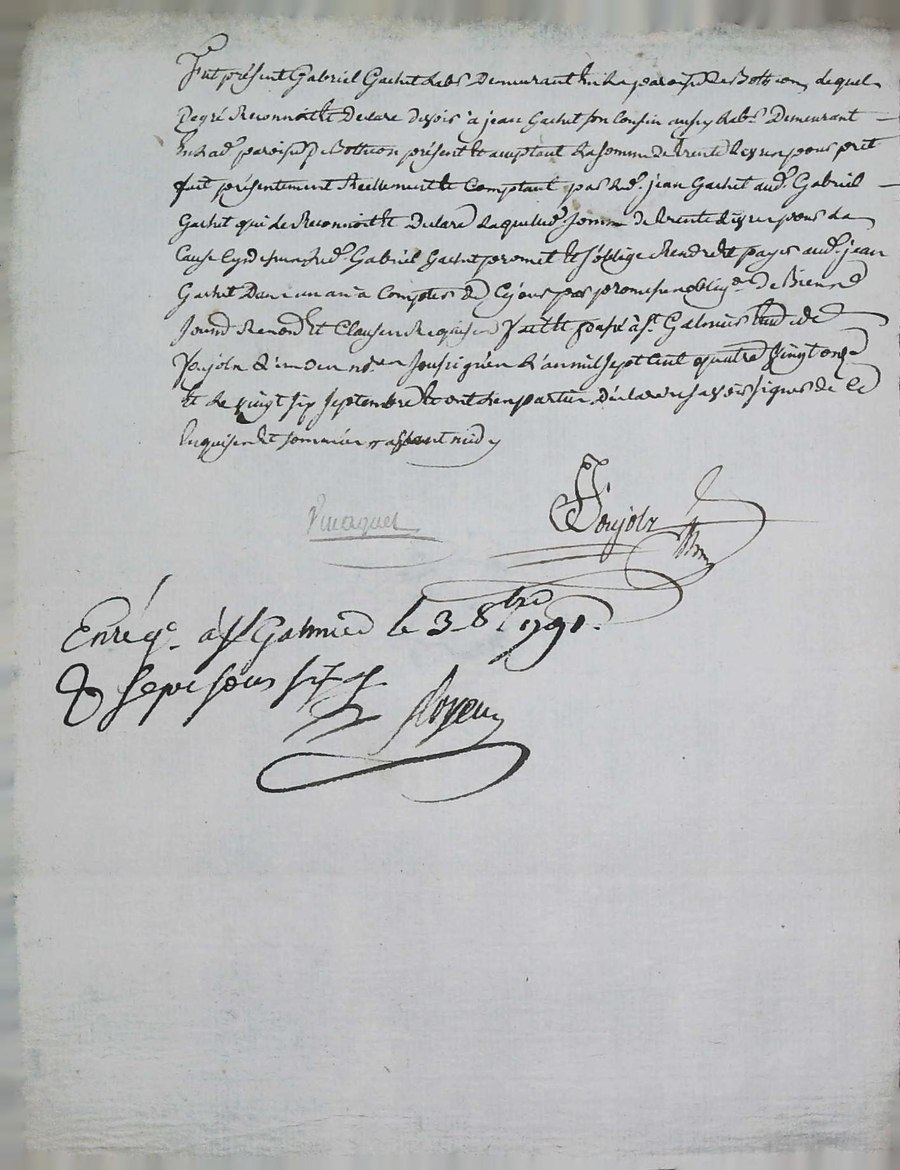 Fut présent Gabriel Gachet lab.r Demeurant en la paroisse de Bothéon, lequel
Degré Reconnoit et Declare devoir à jean Gachet son Cousin aussy lab.r Demeurant
en lad. paroisse de Bothéon présent et acceptant la somme de trente livres pour prêt
fait présentement Réellement et Comptant par led. jean Gachet aud. Gabriel
Gachet qui le Reconnoit et Declare laquelle d. somme de trente livres pour la
Cause Cydessus led. Gabriel Gachet promet et s'oblige Rendre et payer aud. jean
Gachet Dans un an à Compter de Cejour par promesse oblig.on de Biens
soumd Renond et Clauses Requises fait et passé à St. Galmier Etude de
Soujole l'un des not.res soussignés l'an mil sept Cent quatre vingt onze
et le vingt six septembre et ont les parties Déclaré ne savoir signer de Ce
Enquises et sommées avant midy
Soujole
Enrég.e à St Galmier le 3 8bre 1791.
Reçu sous